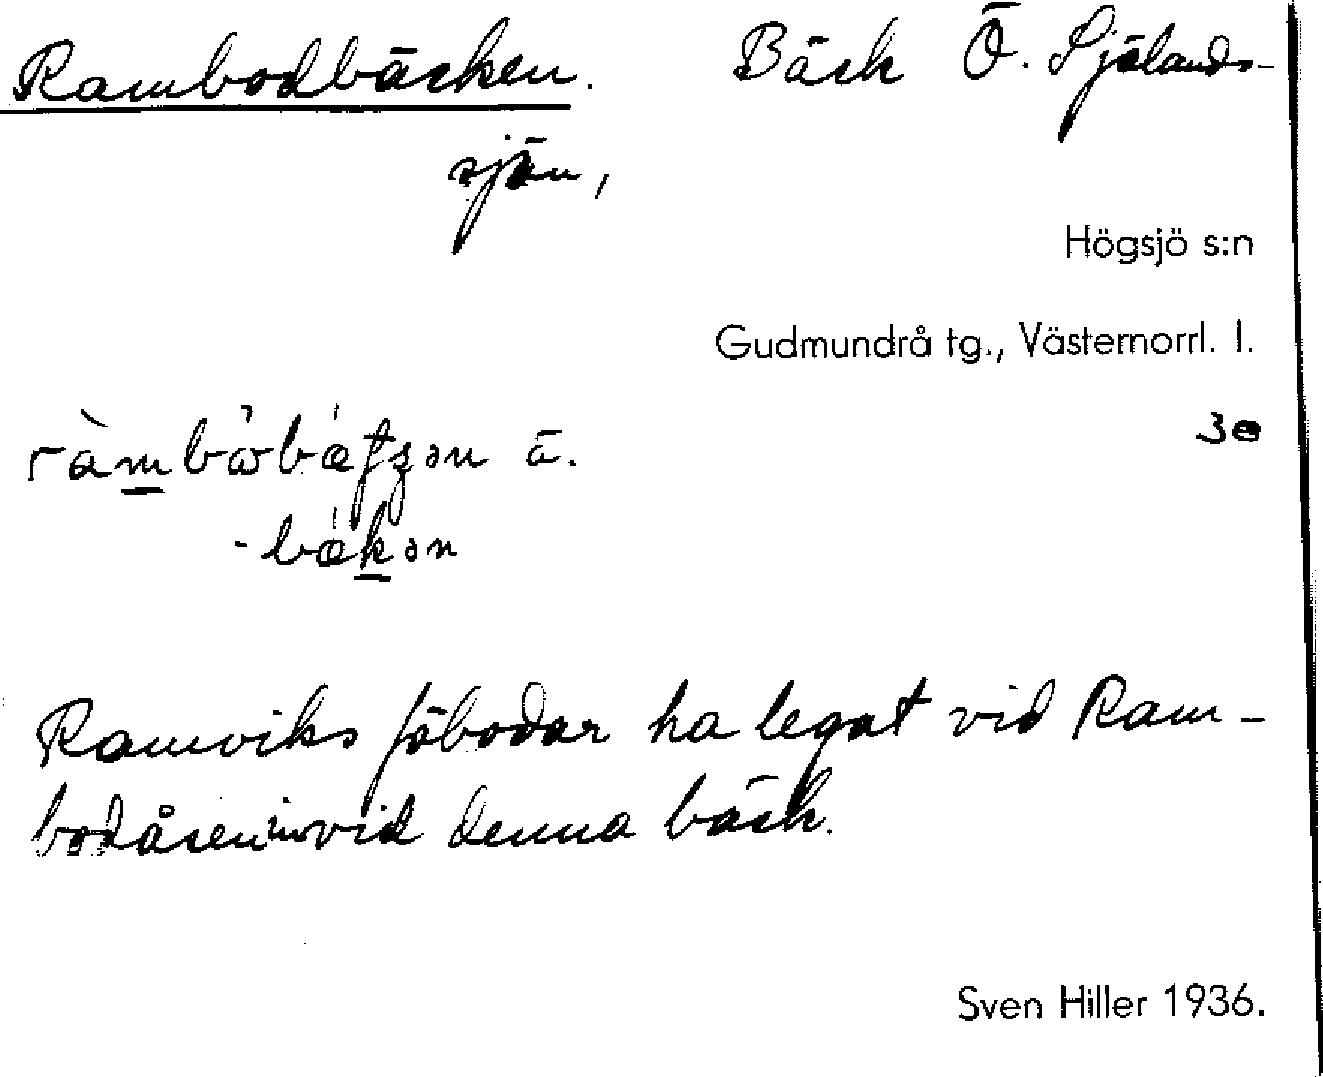 Rambodbäcken. Bäck Ö. Sjölands-
sjön,
Högsjö s:n
Gudmundrå tg., Västernorrl. l.
30
ä.
Ramviks fäbodar ha legat vid Ram-
bodåsen invid denna bäck.
Sven Hiller 1936.